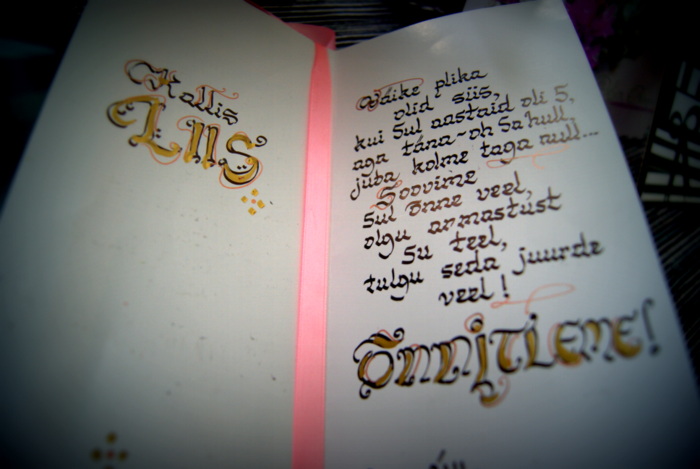 Kallis
LIIS
Väike plika
olid siis,
kui Sul aastaid oli 5,
aga täna-oh Sa hull,
juba kolme taga null...
Soovime
Sul õnne veel,
olgu armastust
Su teel,
tulgu seda juurde
veel!
Õnnitleme!